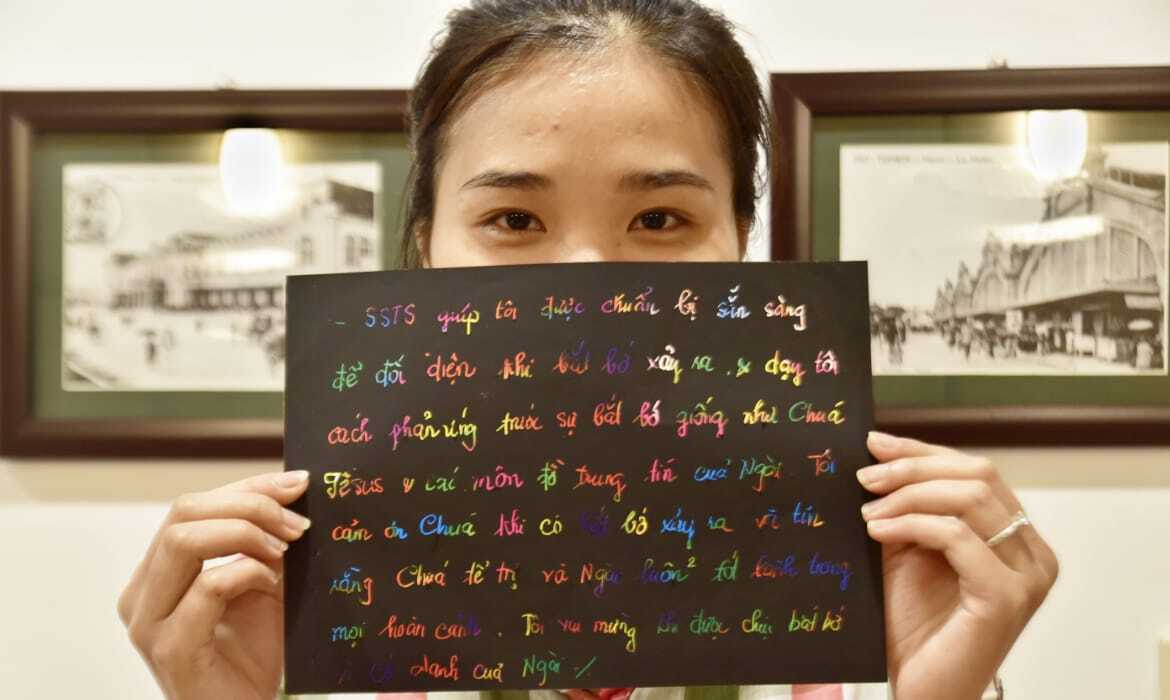 - SSTS giúp tôi được chuẩn bị sẵn sàng
để đối diện khi bắt bớ xảy ra . & dạy tôi
cách phản ứng trước sự bắt bớ giống như Chuá
Jêsus & các môn đồ trung tín cuả Ngài. Tôi
cảm ơn Chuá khi có bắt bớ xảy ra vì tin
rằng Chuá tể trị và Ngài luôn² tốt lành trong
mọi hoàn cảnh. Tôi vui mừng khi được chịu bắt bớ
danh cuả Ngài ./